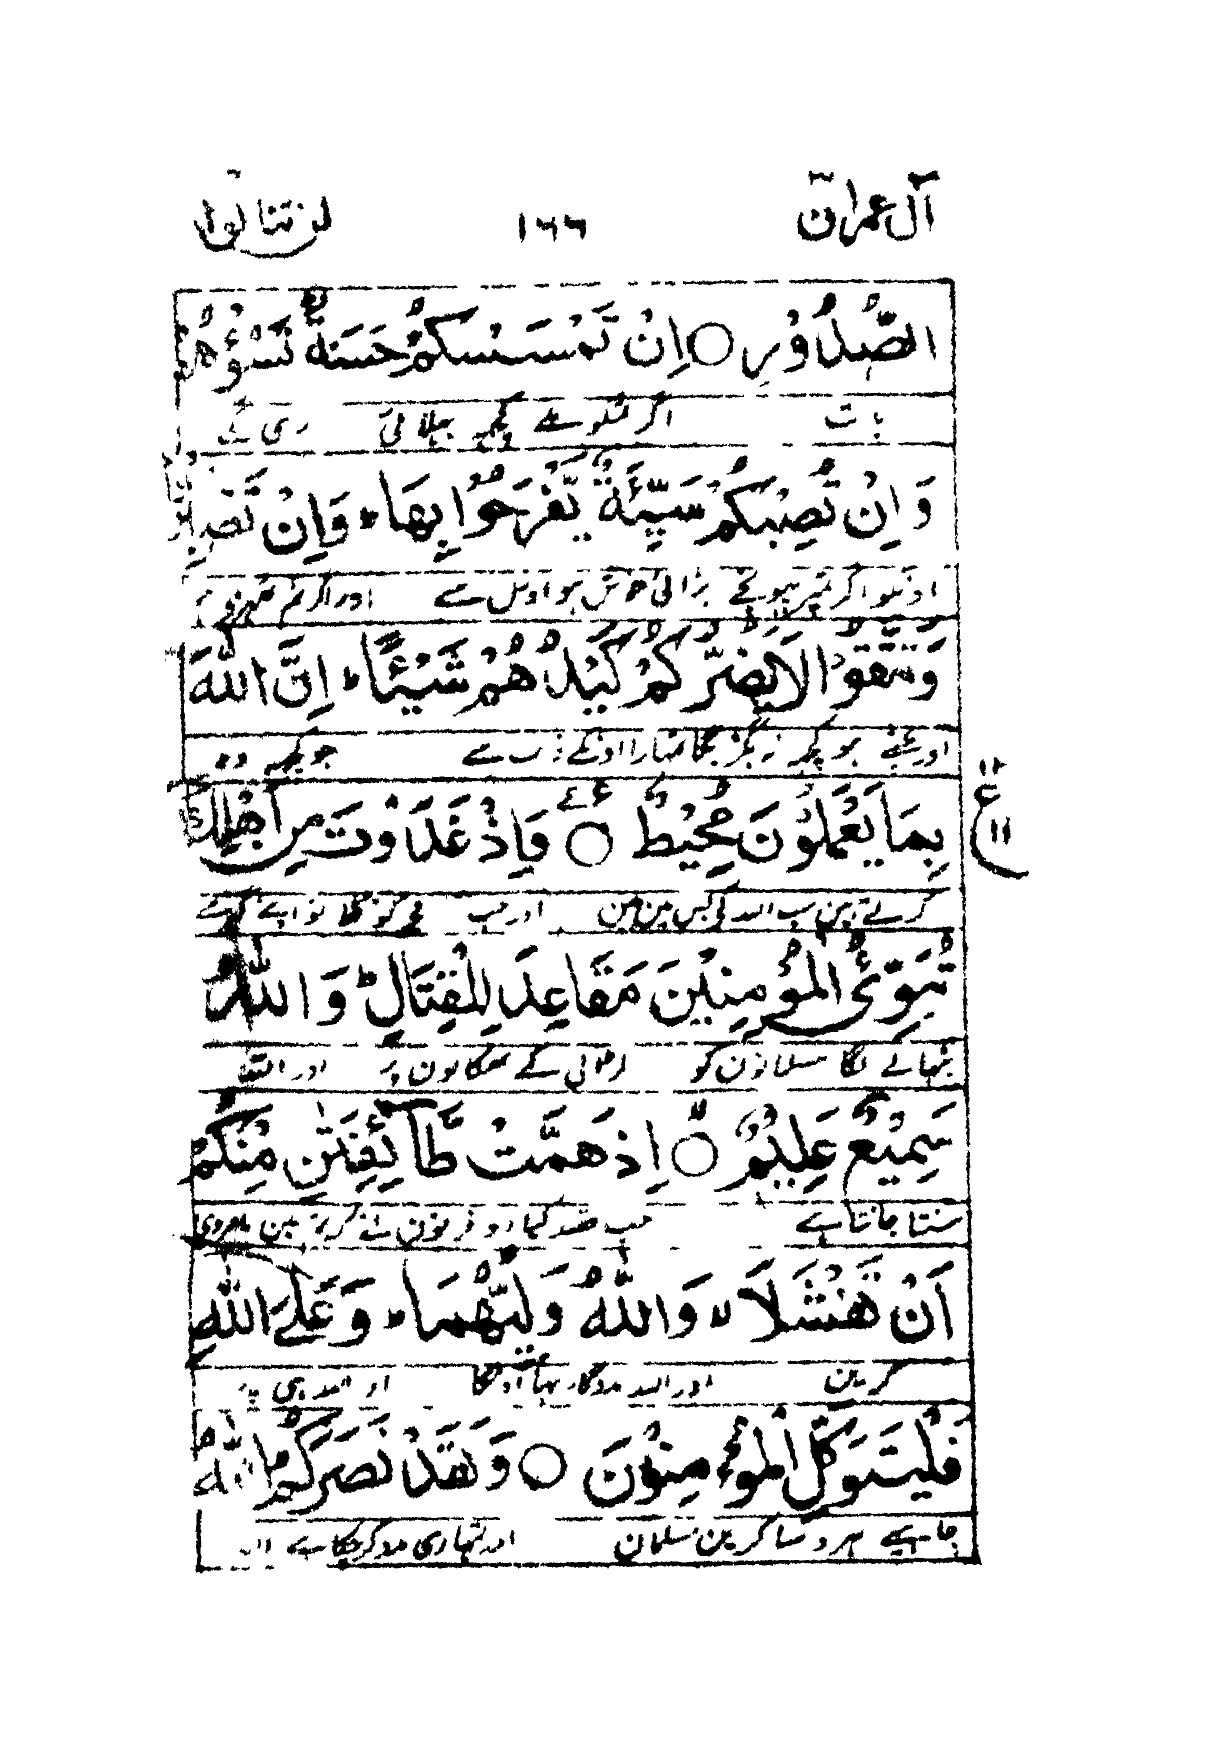 آل عمران ١٦٦ لن تنالوا
الصُّدُوْرِ ○ اِنْ تَمْسَسْكُمْ حَسَنَةٌ تَسُؤْهُمْ
بات اگر تمکو ملے کچھ بہلائی بری لگے
وَاِنْ تُصِبْكُمْ سَيِّئَةٌ يَّفْرَحُوْا بِهَا ؕ وَاِنْ تَصْبِرُوْا
اور تمکو اگر پہونچے برائی خوش ہو اوس سے اور اگر تم ٹھہرے رہو
وَتَتَّقُوْا لَا يَضُرُّكُمْ كَيْدُهُمْ شَيْـًٔا ؕ اِنَّ اللّٰهَ
اور بچتے رہو کچھ نہ بگڑیگا تمہارا اونکے فریب سے جو کچھ وہ
بِمَا يَعْمَلُوْنَ مُحِيْطٌ ○ وَاِذْ غَدَوْتَ مِنْ اَهْلِكَ
١٢
ع
١١
کرتے ہین سب اللہ کی بس مین ہین اور جب فجر کو نکلا تو اپنے گھر سے
تُبَوِّئُ الْمُؤْمِنِيْنَ مَقَاعِدَ لِلْقِتَالِ ؕ وَاللّٰهُ
بٹھانے لگا مسلمانون کو لڑائی کے ٹھکانون پر اور اللہ
سَمِيْعٌ عَلِيْمٌ ○ اِذْ هَمَّتْ طَّآئِفَتٰنِ مِنْكُمْ
سنتا جانتا ہے جب قصد کیا دو فریقون نے تم مین نامردی
اَنْ تَفْشَلَا ۙ وَاللّٰهُ وَلِيُّهُمَا ؕ وَعَلَى اللّٰهِ
کرین اور اللہ مددگار تھا اونکا اور اللہ ہی پر
فَلْيَتَوَكَّلِ الْمُؤْمِنُوْنَ ○ وَلَقَدْ نَصَرَكُمُ اللّٰهُ
چاہیے بھروسا کرین مسلمان اور تمہاری مدد کرچکا ہے اللہ